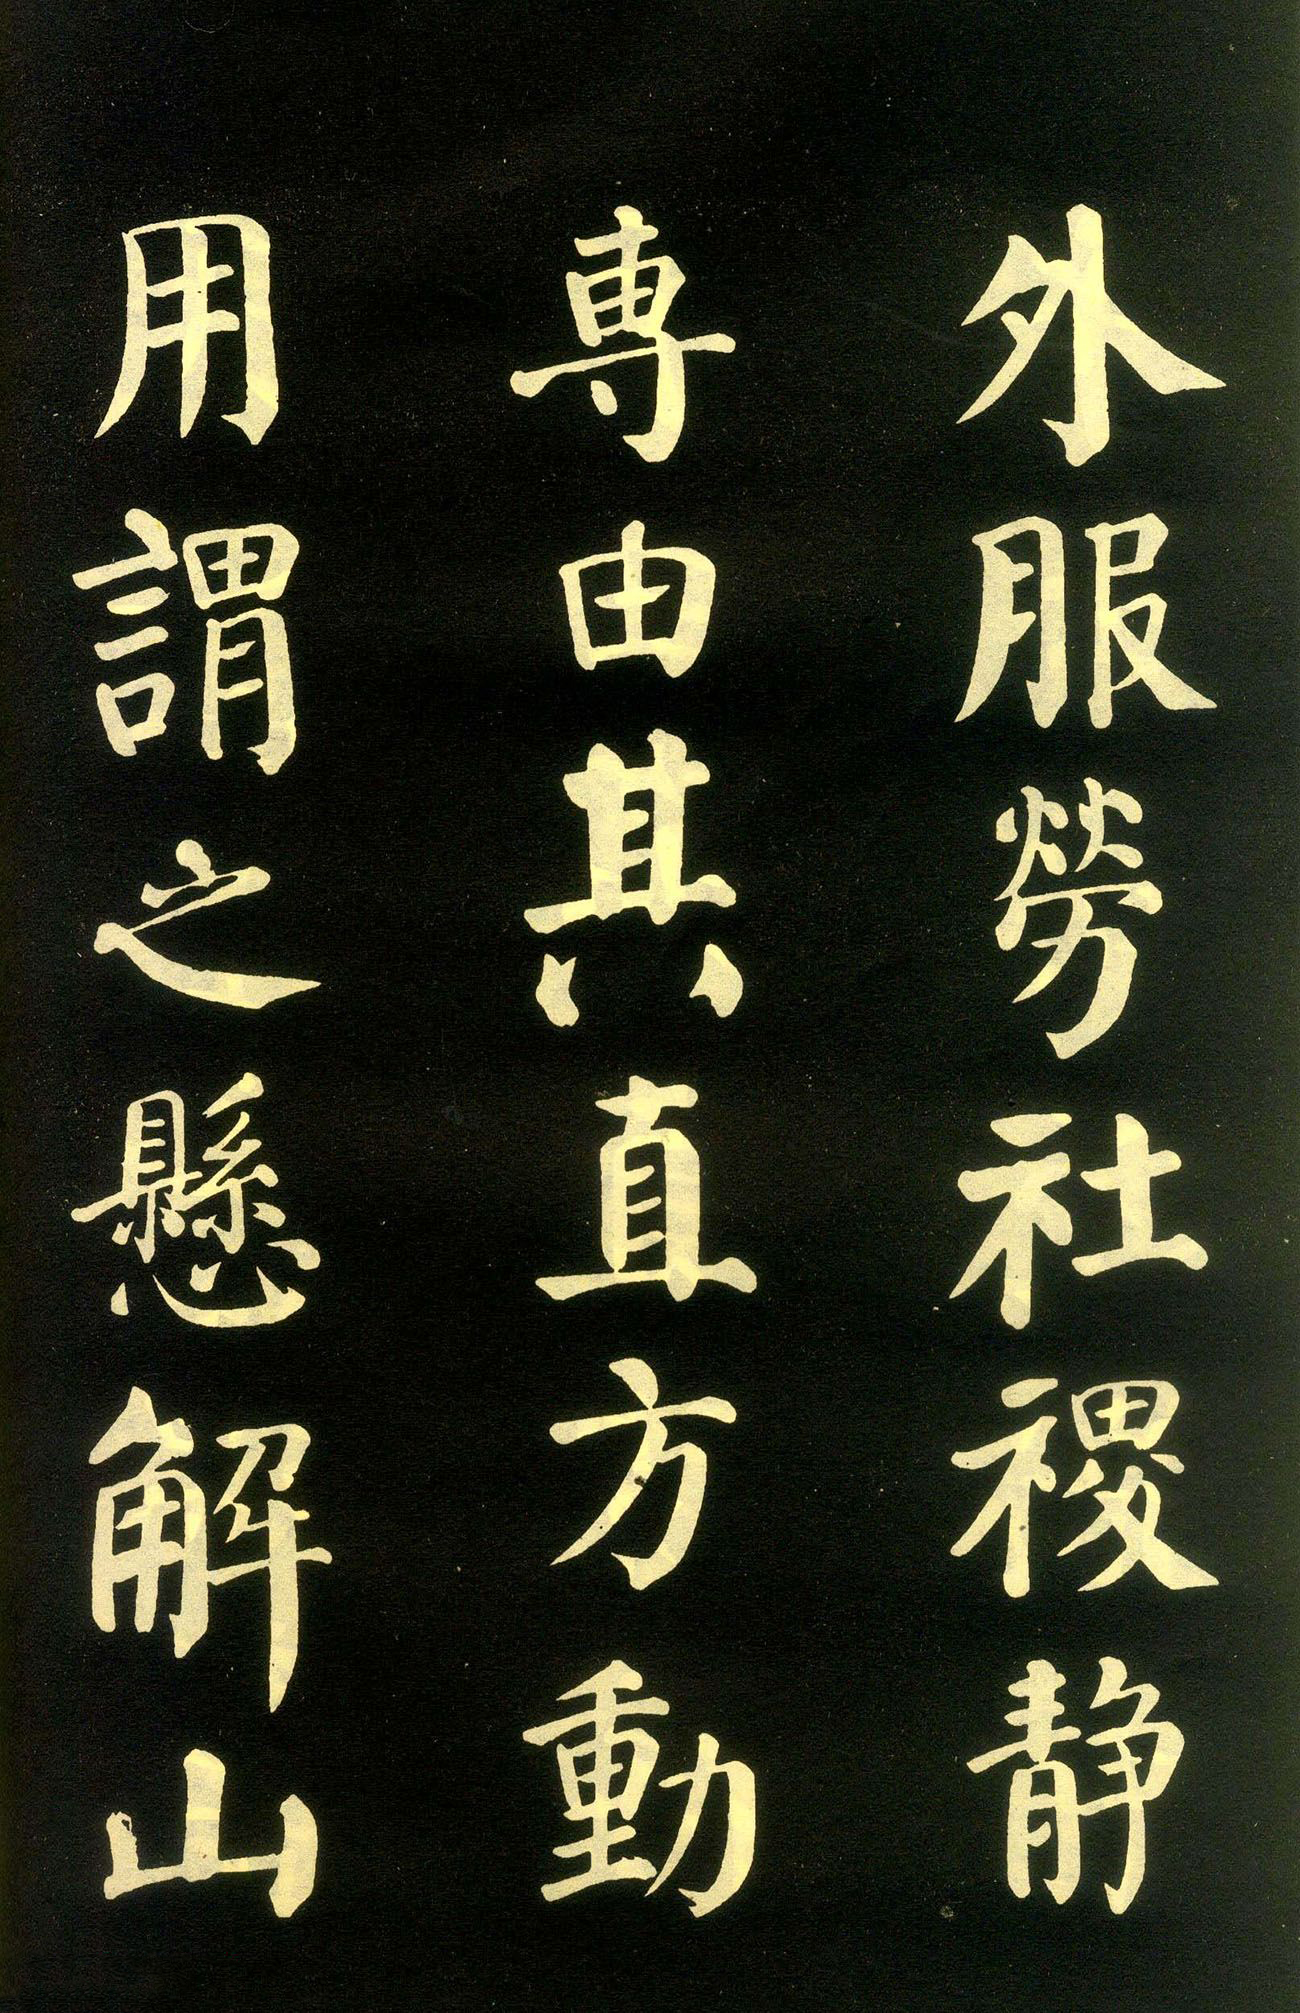 外服勞社禝静
専由其直方動
用謂之懸解山